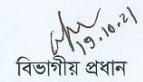 19.10.21
বিভাগীয় প্রধান